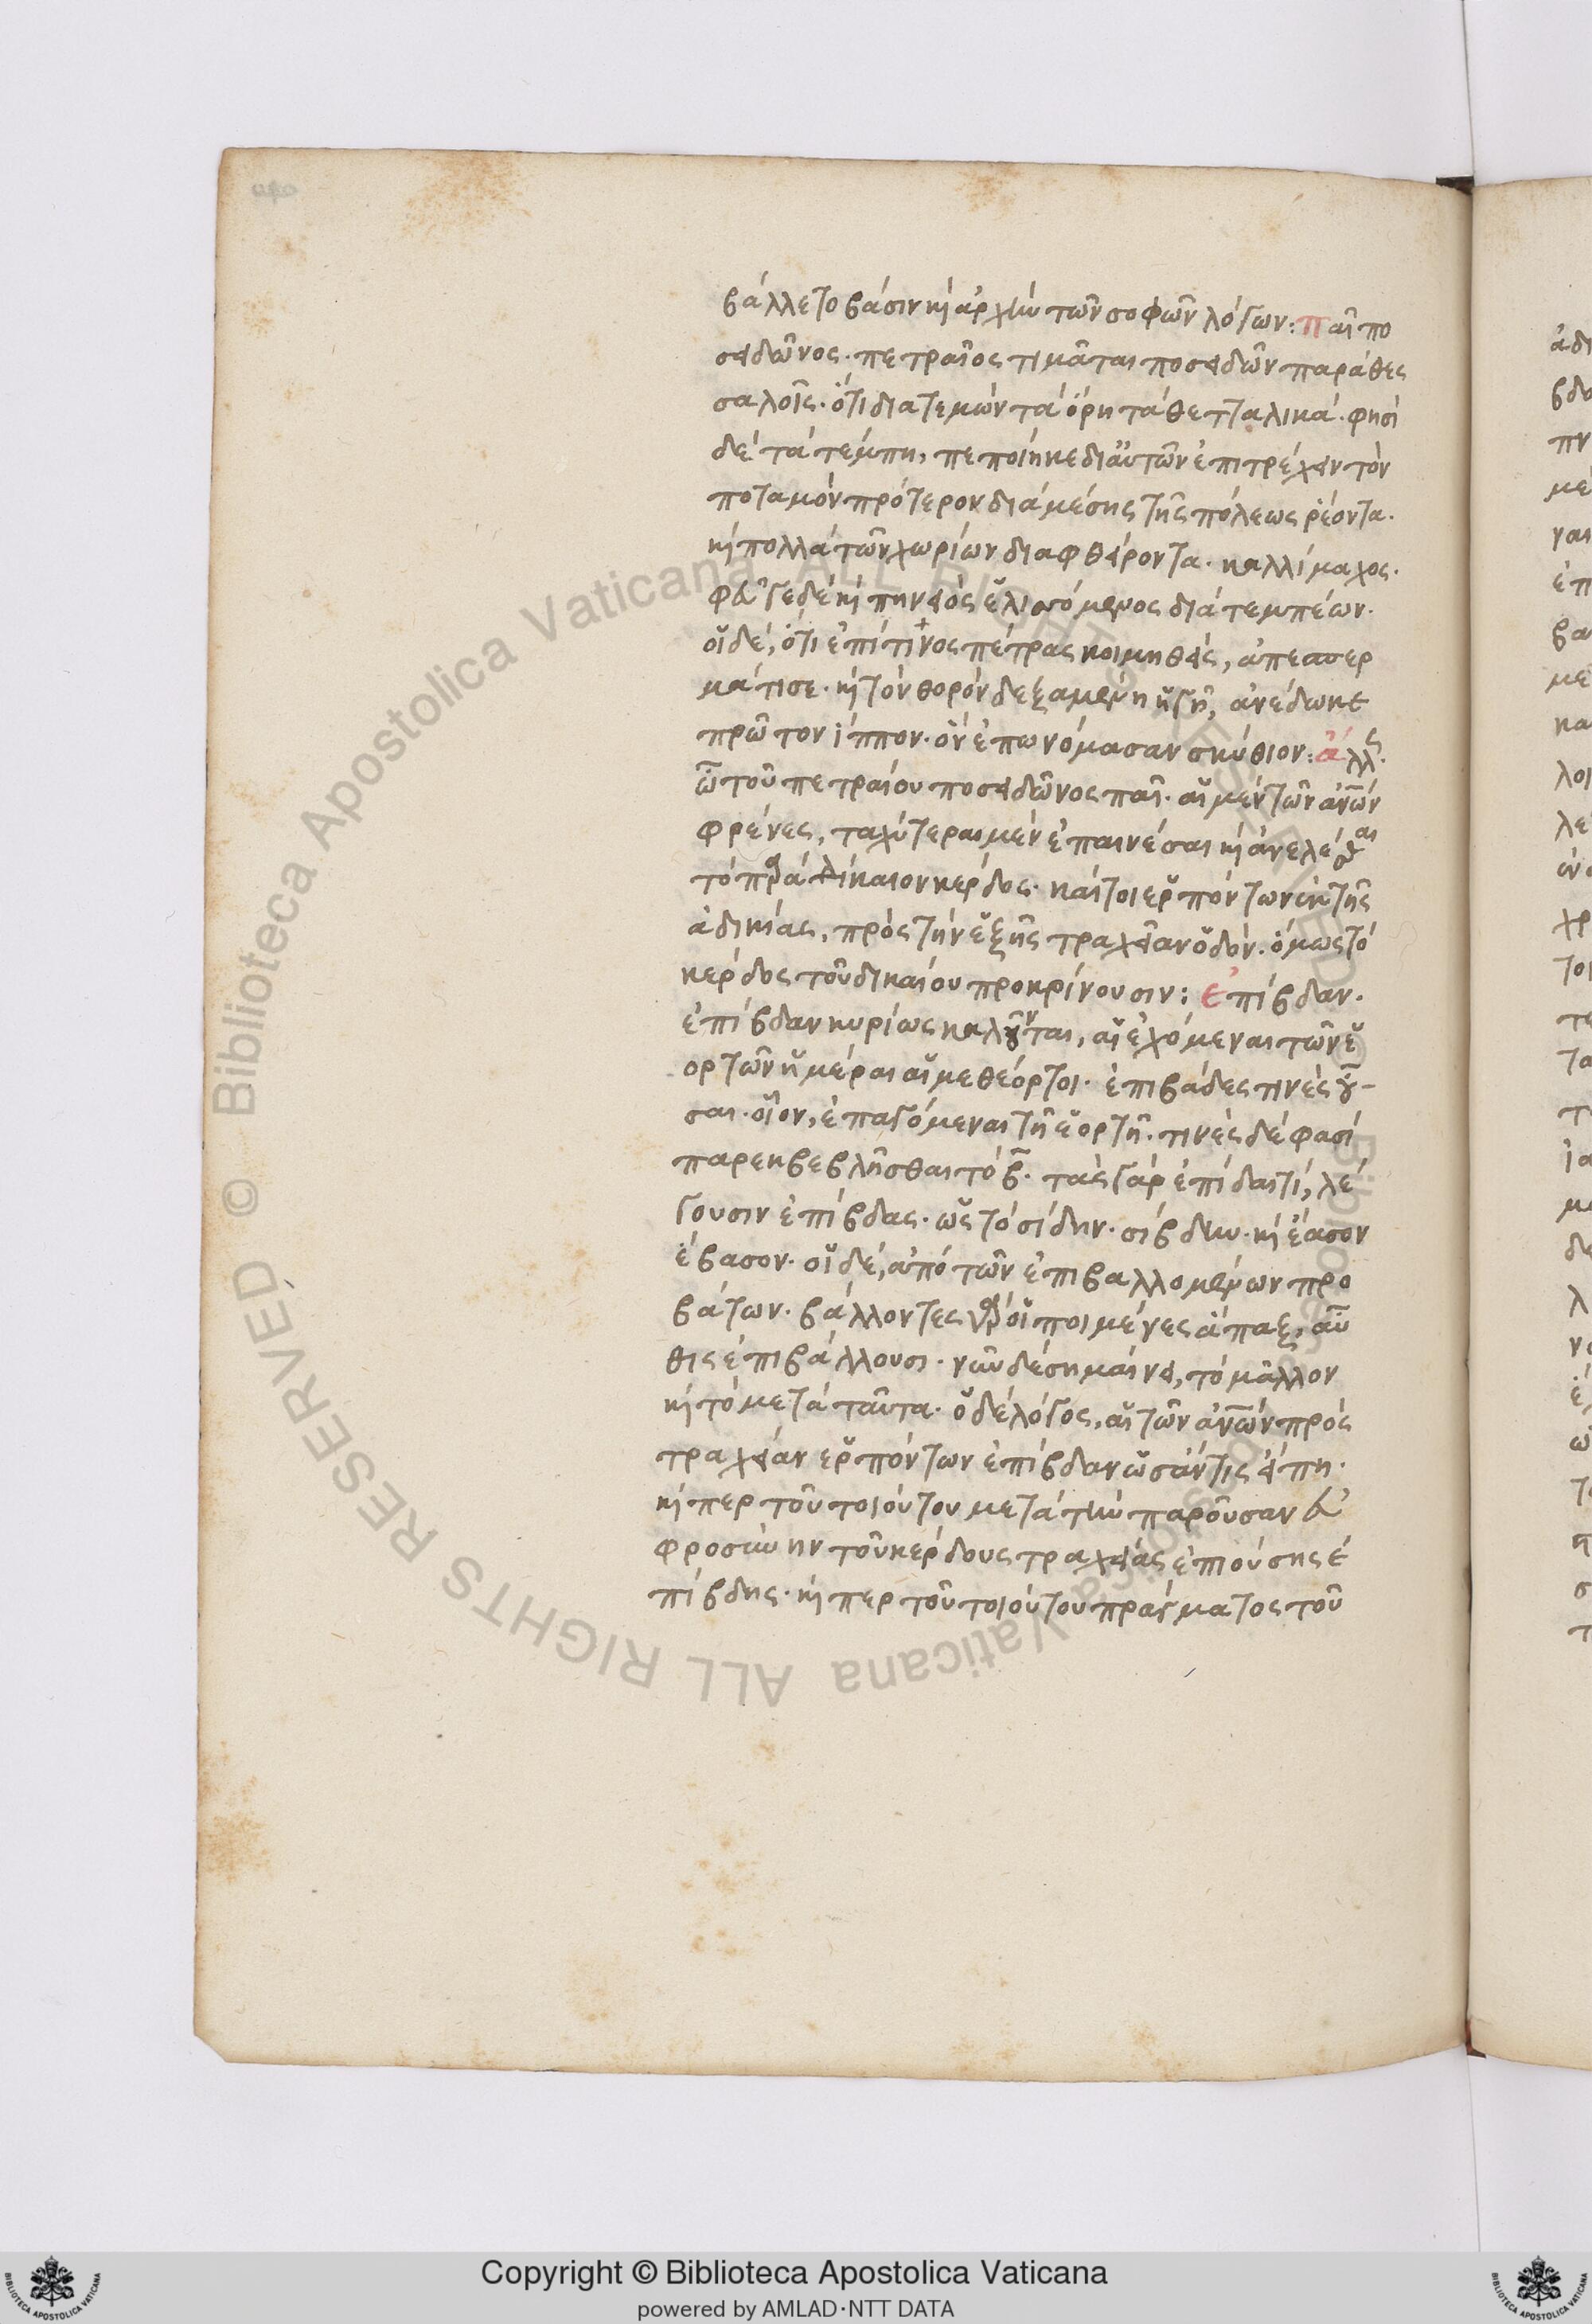 βάλλετο βάσιν κὶ ἀρχὴν τῶν σοφῶν λόγων: παῖ πο
σειδῶνος· πετραῖος τιμᾶται ποσειδῶν παρὰ θεσ
σαλοῖς· ὅτι διατεμὼν τὰ ὄρη τὰ θετταλικά· φησὶ
δὲ τὰ τέμπη, πεποίηκε δι αὐτῶν ἐπιτρέχειν τὸν
ποταμὸν πρότερον διὰ μέσης τῆς πόλεως ῥέοντα·
κὶ πολλὰ τῶν χωρίων διαφθείροντα· καλλίμαχος·
φεῦγε δὲ κὶ πηνειὸς ἑλισσόμενος διὰ τεμπέων·
οἱ δὲ, ὅτι ἐπί τινος πέτρας κοιμηθεὶς, ἀπεσπερ
μάτισε· κὶ τὸν θορὸν δεξαμένη ἡ γῆ, ἀνέδωκε
πρῶτον ἵππον· ὃν ἐπωνόμασαν σκύθιον: ἄλλς·
ὦ τοῦ πετραίου ποσειδῶνος παῖ· αἱ μὲν τῶν ἀνῶν
φρένες, ταχύτεραι μὲν ἐπαινέσαι κὶ ἀνελέσθαι
τὸ παρὰ δίκαιον κέρδος· καίτοι ἑρπόντων ἐκ τῆς
ἀδικίας, πρὸς τὴν ἑξῆς τραχεῖαν ὁδόν· ὅμως τὸ
κέρδος τοῦ δικαίου προκρίνουσιν: ἐπίβδαν·
ἐπίβδαν κυρίως καλοῦνται, αἱ ἐχόμεναι τῶν ἑ
ορτῶν ἡμέραι αἱ μεθέορτοι· ἐπιβάδες τινὲς οὖ-
σαι· οἷον, ἐπαγόμεναι τῇ ἑορτῇ· τινὲς δέ φασι
παρεκβεβλῆσθαι τὸ β· τὰς γὰρ ἐπὶ δαιτὶ, λέ
γουσιν ἐπίβδας· ὡς τὸ σίδην· σίβδην· κὶ ἔασον
ἔβασον· οἱ δὲ, ἀπὸ τῶν ἐπιβαλλομένων προ
βάτων· βάλλοντες γὰρ οἱ ποιμένες ἅπαξ, αὖ
θις ἐπιβάλλουσι· νῦν δὲ σημαίνει, τὸ μᾶλλον
κὶ τὸ μετὰ ταῦτα· ὁ δὲ λόγος, αἱ τῶν ἀνῶν πρὸς
τραχεῖαν ἑρπόντων ἐπίβδαν ὡσάν τις εἴπῃ·
κὶ περ τοῦ τοιούτου μετὰ τὴν παροῦσαν εὐ
φροσύνην τοῦ κέρδους τραχείας ἐπιούσης ἐ
πίβδης· κὶ περ τοῦ τοιούτου πράγματος τοῦ
Copyright © Biblioteca Apostolica Vaticana
powered by AMLAD·NTT DATA
© Biblioteca Apostolica Vaticana ALL RIGHTS RESERVED